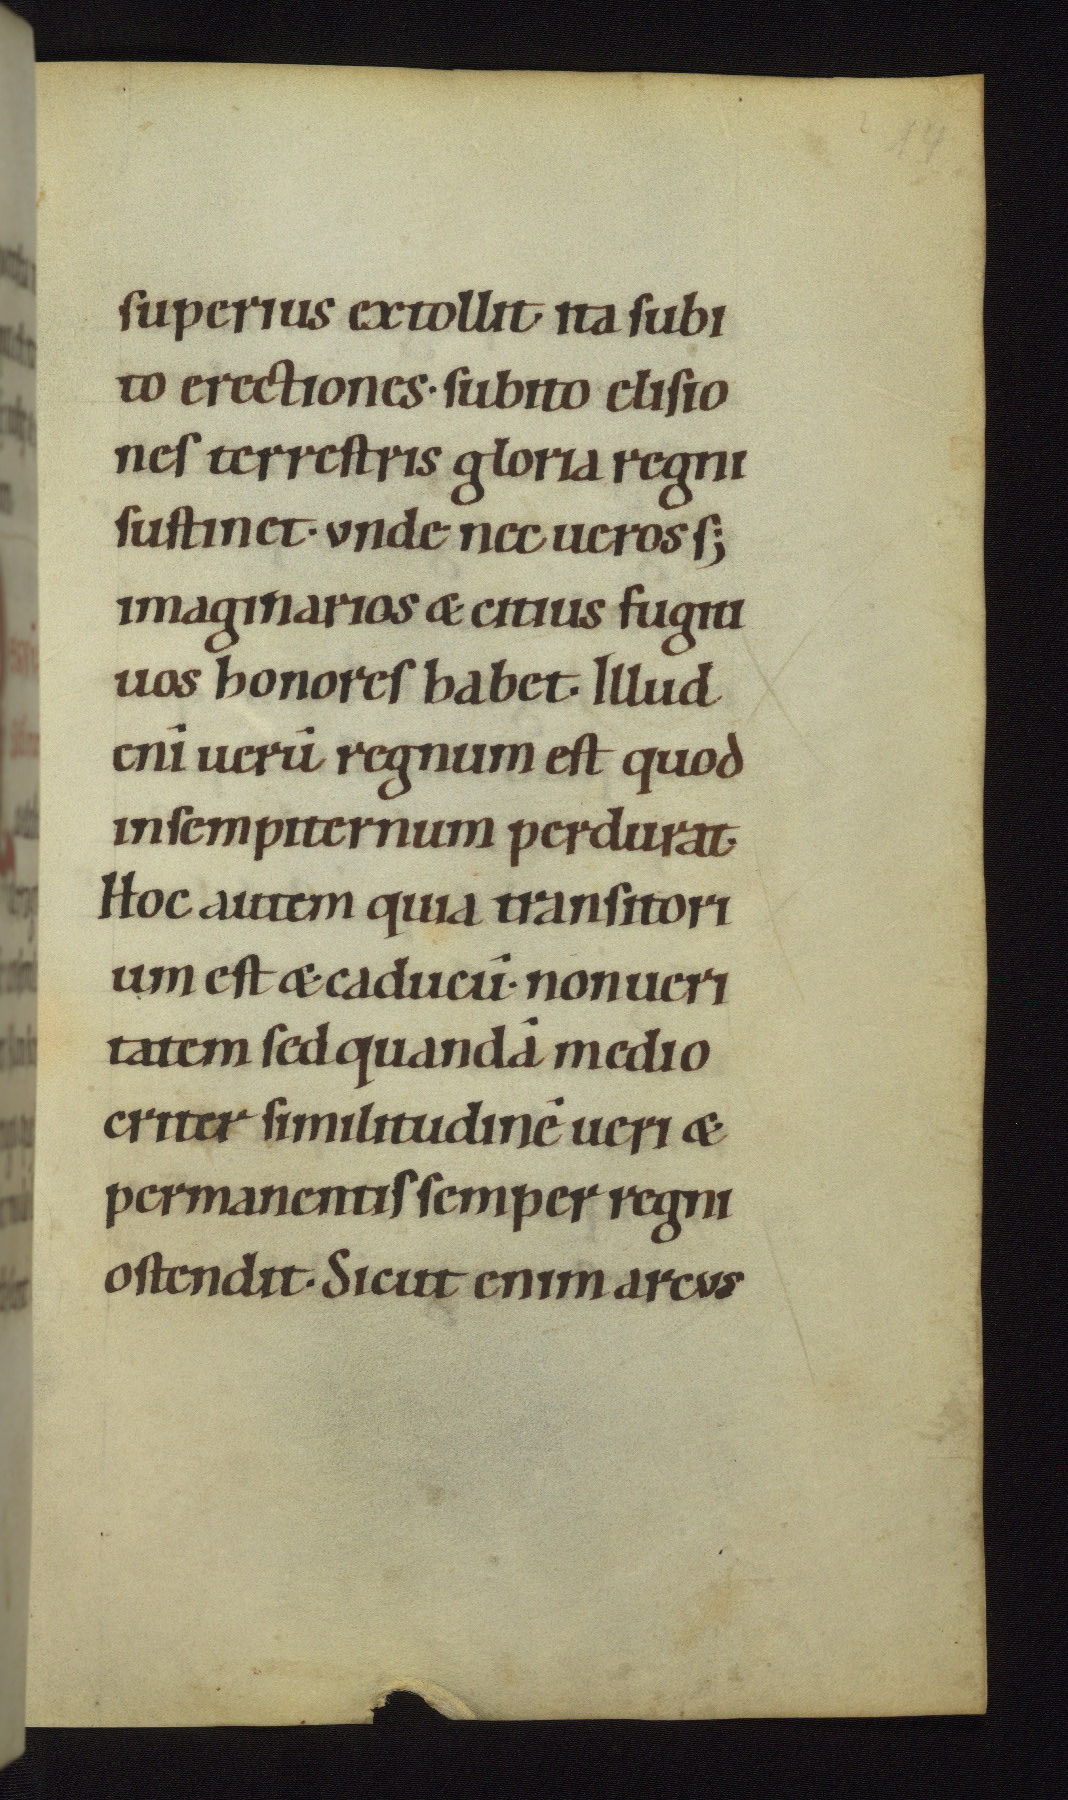 superius extollit ita subi
to erectiones· subito elisio
nes terrestris gloria regni
sustinet· vnde nec ueros s;
imaginarios & citius fugiti
uos honores habet. Illud
enī uerū regnum est quod
insempiternum perdurat·
Hoc autem quia transitori
um est & caducū· non ueri
tatem sed quandā medio
criter similitudinē ueri &
permanentis semper regni
ostendit. Sicut enim arcus